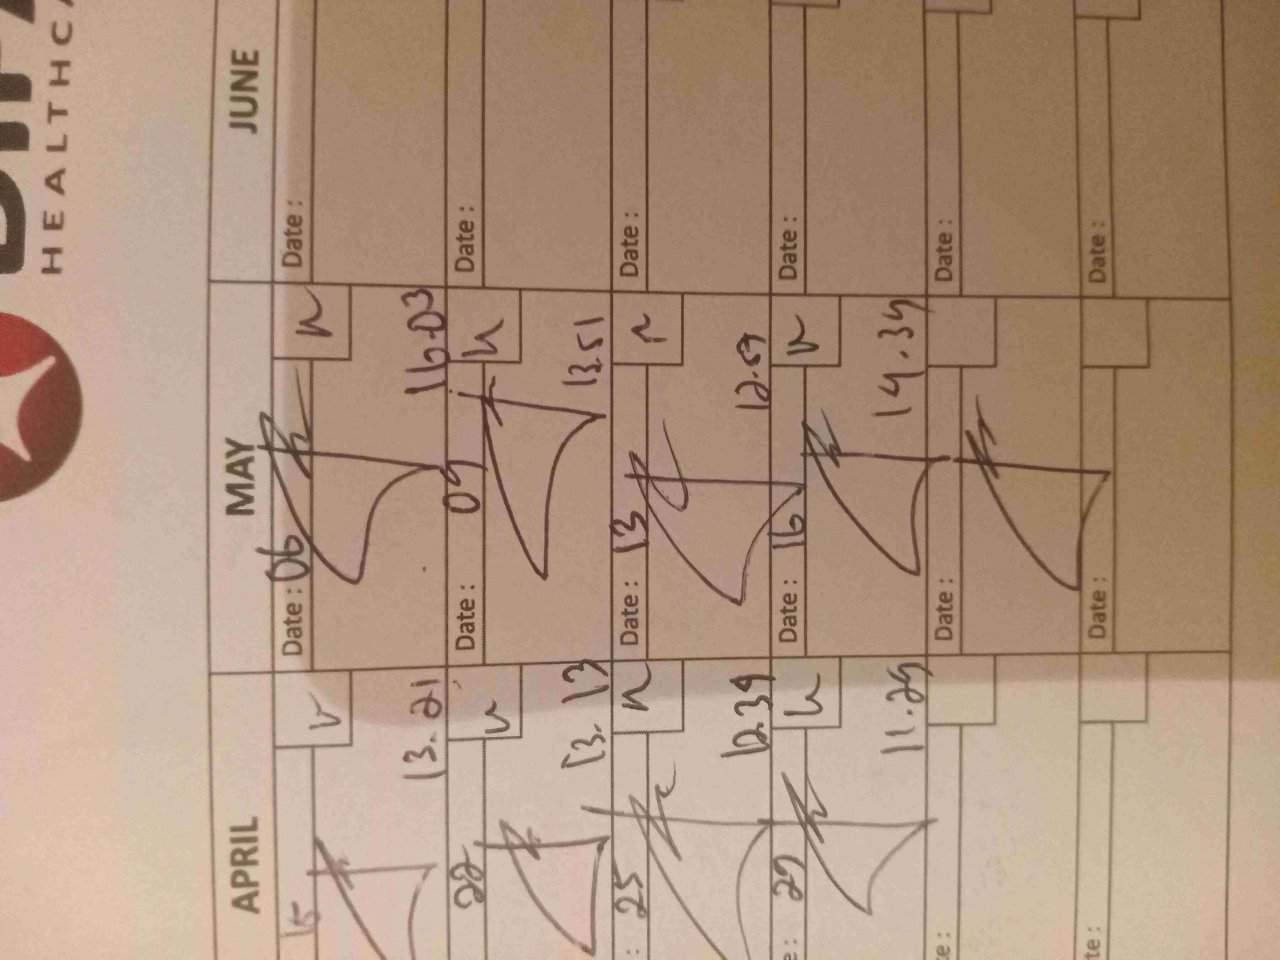 HEALTHCA
APRIL MAY JUNE
15 Date : 06 Date :
13.21 16.03
22 Date : 09 Date :
13.13 13.51
: 25 Date : 13 Date :
12.39 12.59
e : 29 Date : 16 Date :
11.29 14.34
te : Date : Date :
te : Date : Date :